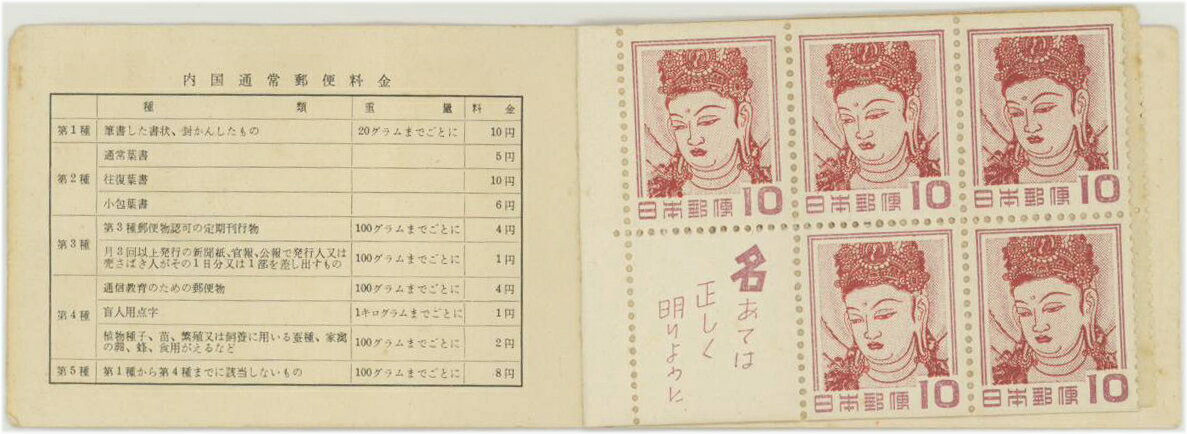 内国通常郵便料金
種類 重量 料金
第1種 筆書した書状、封かんしたもの 20グラムまでごとに 10円
第2種 通常葉書 5円
往復葉書 10円
小包葉書 6円
第3種 第3種郵便物認可の定期刊行物 100グラムまでごとに 4円
月3回以上発行の新聞紙、官報、公報で発行人又は
売さばき人がその1日分又は1部を差し出すもの 100グラムまでごとに 1円
第4種 通信教育のための郵便物 100グラムまでごとに 4円
盲人用点字 1キログラムまでごとに 1円
植物種子、苗、繁殖又は飼養に用いる蚕種、家禽
の卵、蜂、食用がえるなど 100グラムまでごとに 2円
第5種 第1種から第4種までに該当しないもの 100グラムまでごとに 8円
日本郵便 10
日本郵便 10
日本郵便 10
名あては
正しく
明りょうに
日本郵便 10
日本郵便 10